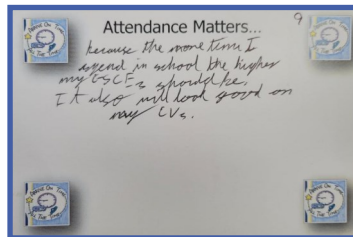 Attendance Matters... 9
because the more time I
spend in school the higher
my GSCEs should be.
It also will look good on
my CVs.